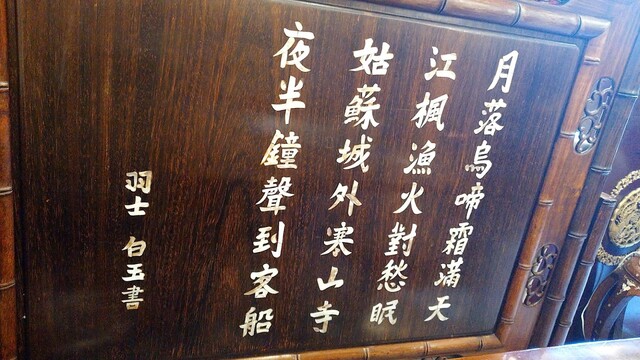 月落烏啼霜滿天
江楓漁火對愁眠
姑蘇城外寒山寺
夜半鐘聲到客船
羽士 白玉書